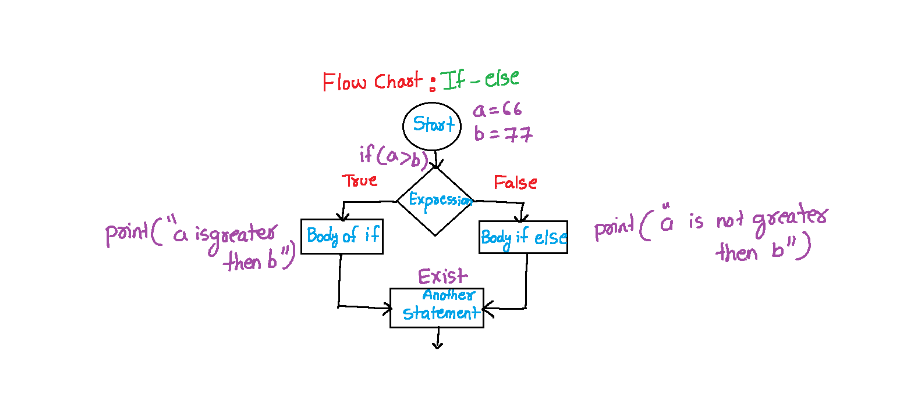 Flow Chart : If-else
Start
a=66
b=77
if(a>b)
True
False
Expression
print("a is greater
then b")
Body of if
Body if else
print("a is not greater
then b")
Exist
Another
statement